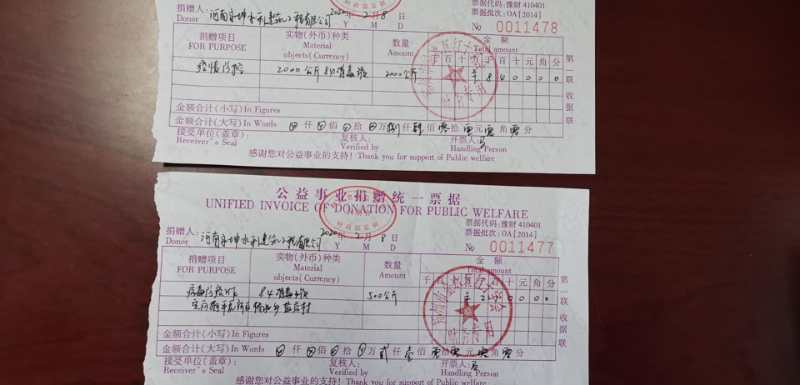 捐赠人:河南 水利建筑工程有限公司 2020年2月8日 票据代码:豫财 410401
Donor Y M D 票据批次:OA[2014]
No 0011478
捐赠项目 实物(外币)种类 数量 金额
FOR PURPOSE Material Amount Total amount
objects (Currency) 百十元角分
疫情防控 2000公斤84消毒液 2000公斤 ¥840000
第 联 收据联
金额合计(小写) In Figures
金额合计(大写) In Words 仟 佰 拾 万捌仟肆佰零拾零元零角零分
接受单位(盖章): 复核人: 开票人:
Receiver's Seal Verified by Handling Person
感谢您对公益事业的支持! Thank you for support of Public welfare
公益事业捐赠统一票据
UNIFIED INVOICE OF DONATION FOR PUBLIC WELFARE
捐赠人:河南 水利建筑工程有限公司 2020年2月8日 票据代码:豫财 410401
Donor Y M D 票据批次:OA[2014]
No 0011477
捐赠项目 实物(外币)种类 数量 金额
FOR PURPOSE Material Amount Total amount
objects (Currency) 千 元角分
84消毒液 500公斤 ¥
第 联 收据联
金额合计(小写) In Figures
金额合计(大写) In Words 仟 佰 拾 万贰仟壹佰零拾零元零角零分
接受单位(盖章): 复核人: 开票人:
Receiver's Seal Verified by Handling Person
感谢您对公益事业的支持! Thank you for support of Public welfare